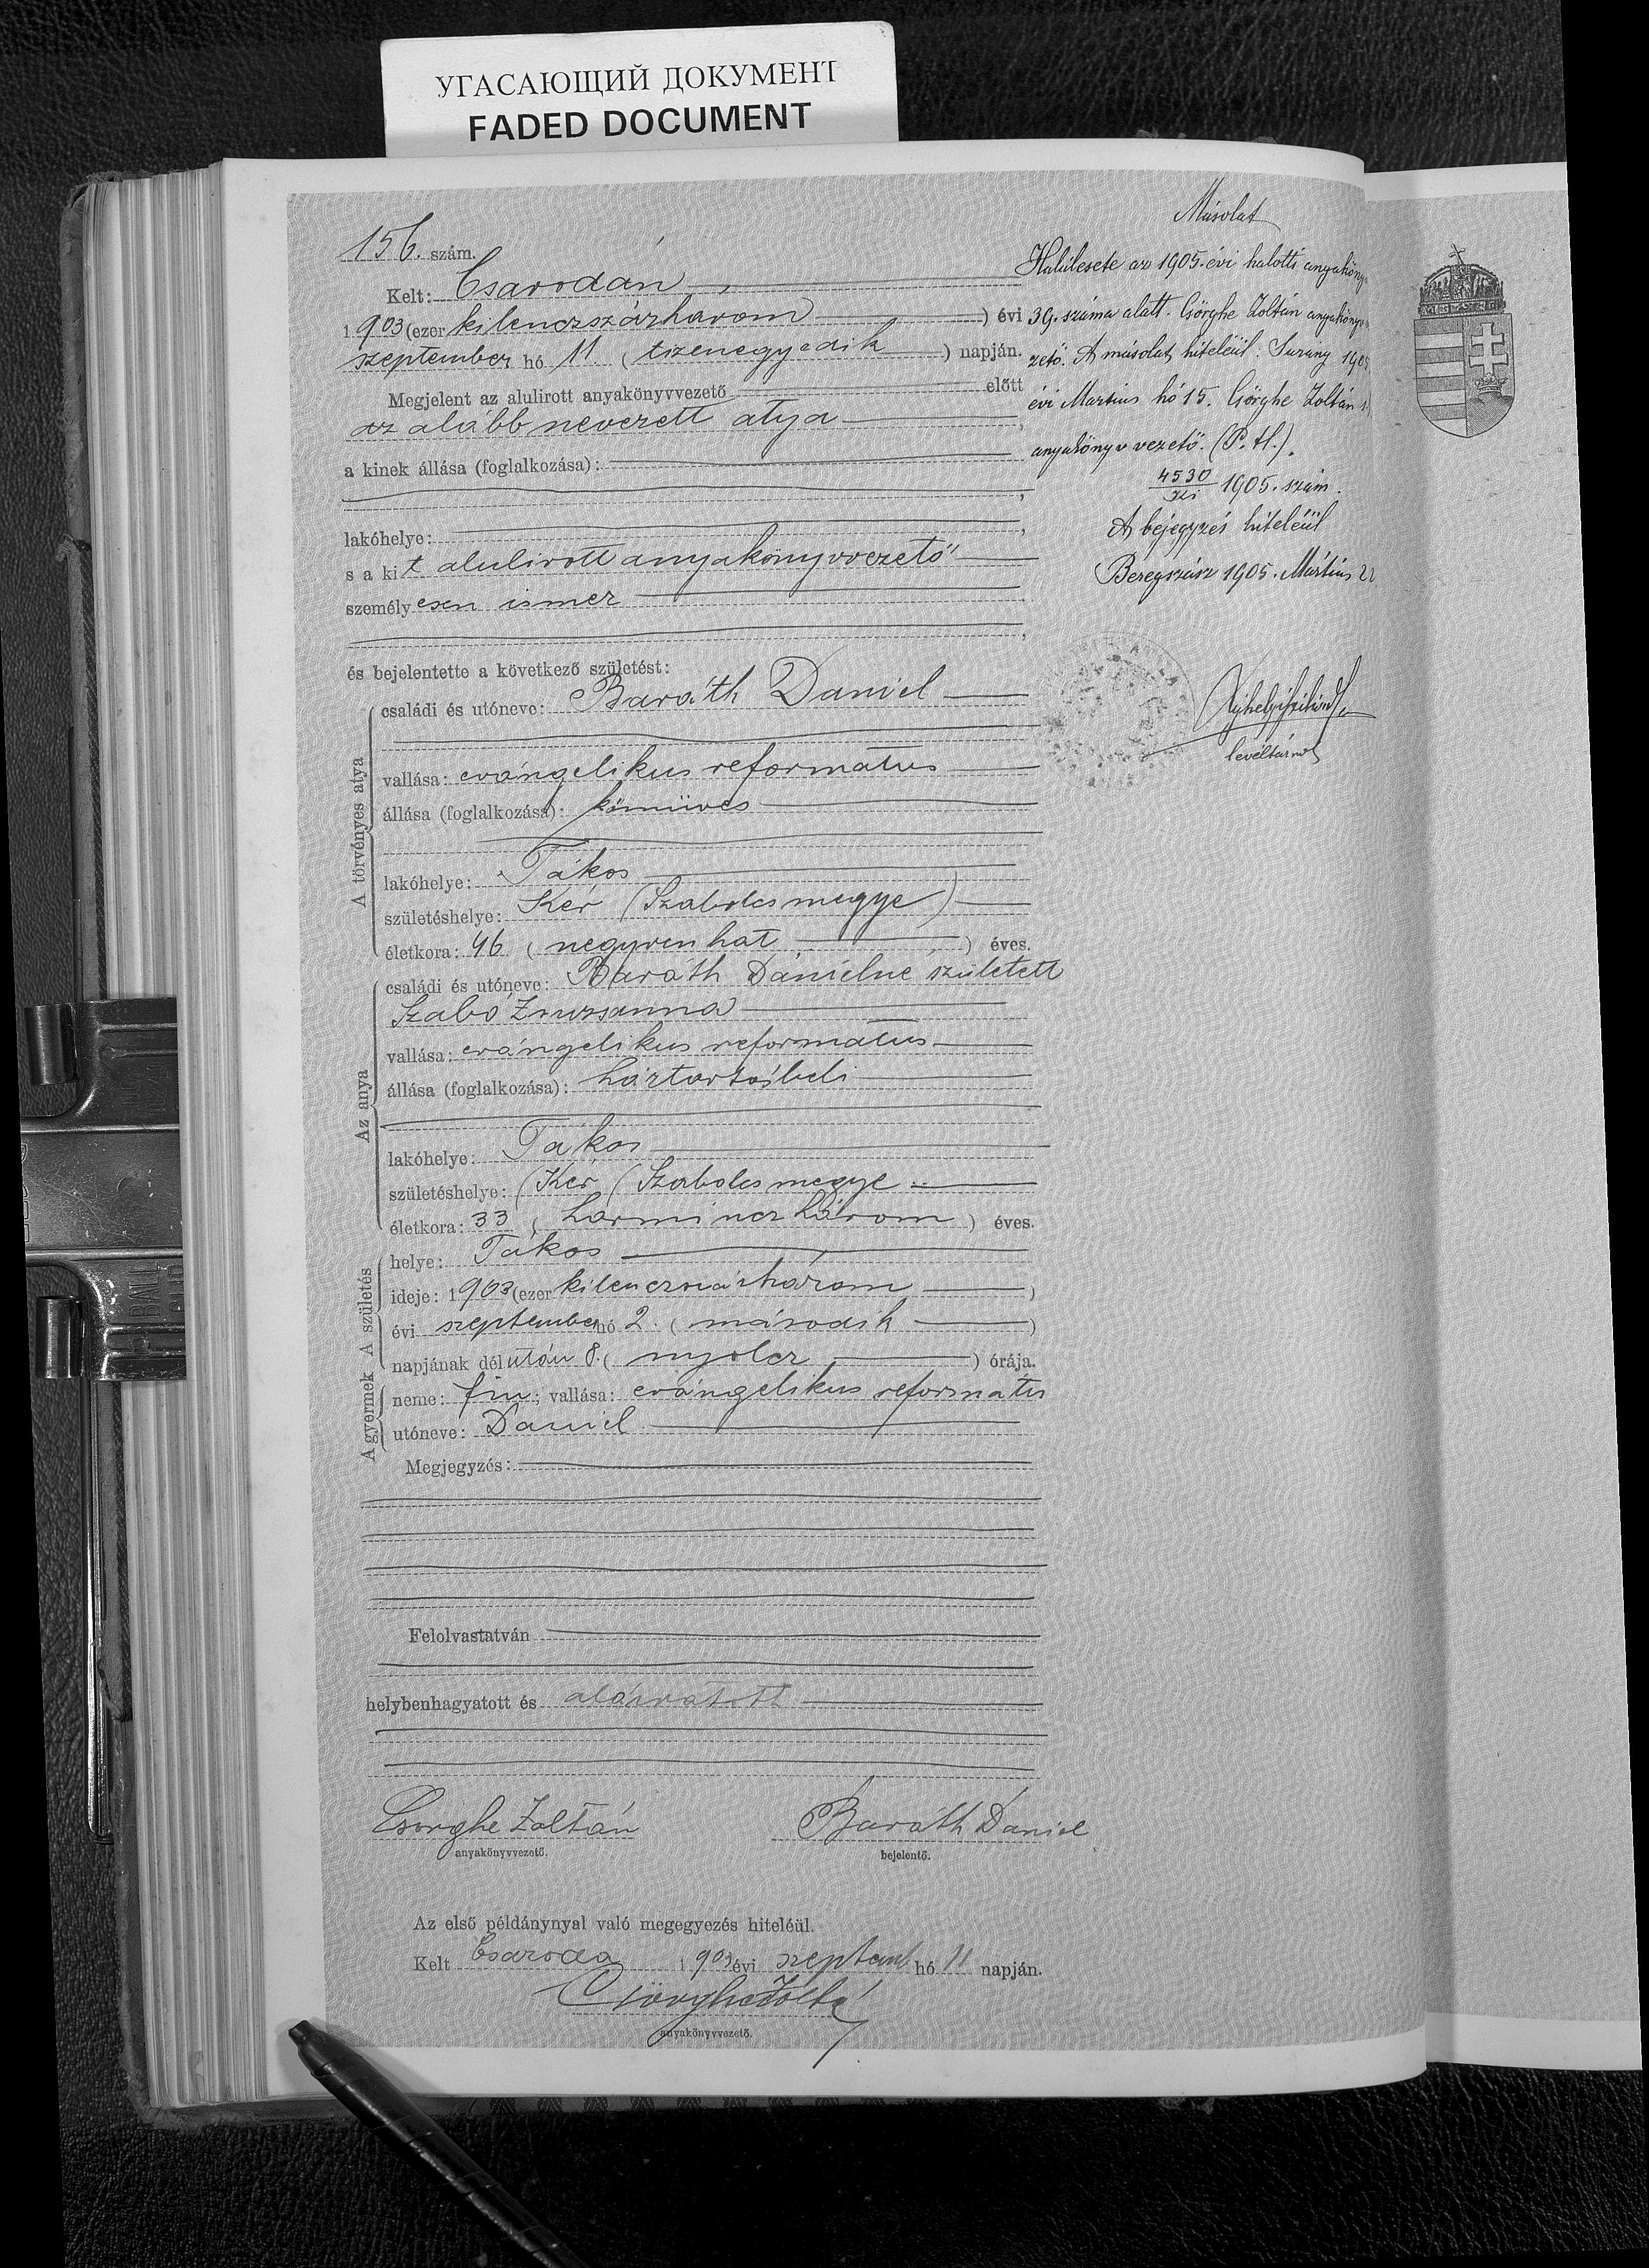 УГАСАЮЩИЙ ДОКУМЕНТ
FADED DOCUMENT
156. szám.
Kelt: Csarodán
1903 (ezer kilenczszázhárom) évi
szeptember hó 11 (tizenegyedik) napján.
Megjelent az alulirott anyakönyvvezető előtt
az alább nevezett atya,
a kinek állása (foglalkozása):
lakóhelye:
s a kit alulirott anyakönyvvezető
személyesen ismer
és bejelentette a következő születést:
A törvényes atya
családi és utóneve: Baráth Dániel
vallása: evángelikus református
állása (foglalkozása): kőmüves
lakóhelye: Tákos
születéshelye: Kér (Szabolcsmegye)
életkora: 46 (negyvenhat) éves.
Az anya
családi és utóneve: Baráth Dánielné született
Szabó Zsuzsanna
vallása: evángelikus református
állása (foglalkozása): háztartásbeli
lakóhelye: Tákos
születéshelye: Kér (Szabolcsmegye
életkora: 33 (harminczhárom) éves.
A születés
helye: Tákos
ideje: 1903 (ezer kilenczszázhárom)
évi szeptember hó 2. (második)
napjának délután 8. (nyolcz) órája.
A gyermek
neme: fiu; vallása: evángelikus református
utóneve: Dániel
Megjegyzés:
Felolvastatván
helybenhagyatott és aláiratott
Csörghe Zoltán
anyakönyvvezető.
Baráth Dániel
bejelentő.
Az első példánynyal való megegyezés hiteléül.
Kelt Csaroda 1903 évi szeptemb hó 11 napján.
Csörghe Zoltá
anyakönyvvezető.
Másolat
Halálesete az 1905. évi halotti anyakönyv
39. száma alatt. Csörghe Zoltán anyakönyvve
zető. A másolat hiteléül. Surány 1905
évi Martius hó 15. Csörghe Zoltán
anyakönyvvezető. (P. H.).
4530 1905. szám.
A bejegyzés hiteléül
Beregszász 1905. Mártius 22
levéltárnok